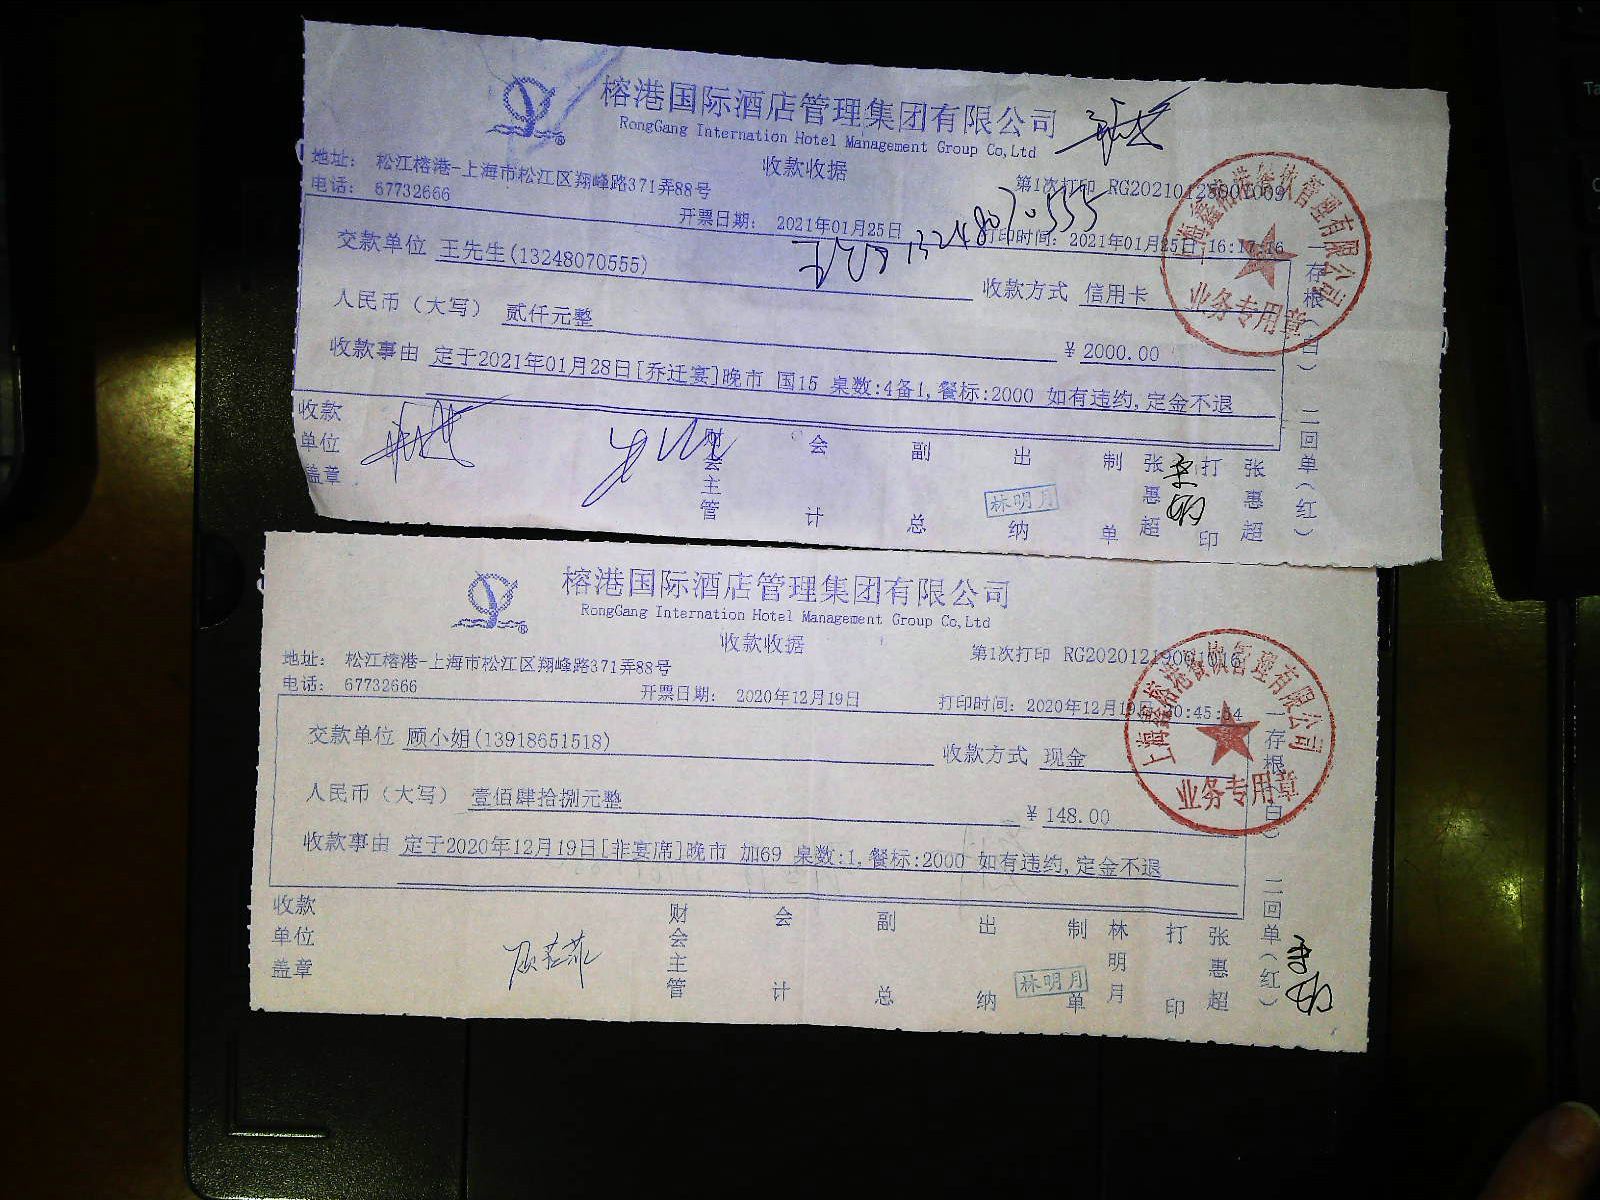 榕港国际酒店管理集团有限公司
RongGang Internation Hotel Management Group Co,Ltd
收款收据
地址： 松江榕港-上海市松江区翔峰路371弄88号
第1次打印 RG20210125001009
电话： 67732666
开票日期： 2021年01月25日
打印时间：2021年01月25日 16:17:16
13248070555
交款单位 王先生(13248070555)
收款方式 信用卡
人民币（大写） 贰仟元整
￥ 2000.00
收款事由 定于2021年01月28日[乔迁宴]晚市 国15 桌数:4备1,餐标:2000 如有违约,定金不退
收款单位盖章
财会主管
会计
副总
出纳
林明月
制单
张惠超
打印
张惠超
一存根（白） 二回单（红）
餐饮管理有限公司
业务专用章
榕港国际酒店管理集团有限公司
RongGang Internation Hotel Management Group Co,Ltd
收款收据
地址： 松江榕港-上海市松江区翔峰路371弄88号
第1次打印 RG20201219001016
电话： 67732666
开票日期： 2020年12月19日
打印时间：2020年12月19日
交款单位 顾小姐(13918651518)
收款方式 现金
人民币（大写） 壹佰肆拾捌元整
￥ 148.00
收款事由 定于2020年12月19日[非宴席]晚市 加69 桌数:1,餐标:2000 如有违约,定金不退
收款单位盖章
财会主管
会计
副总
出纳
林明月
制单
林明月
打印
张惠超
一存根（白） 二回单（红）
上海鑫榕港餐饮管理有限公司
业务专用章